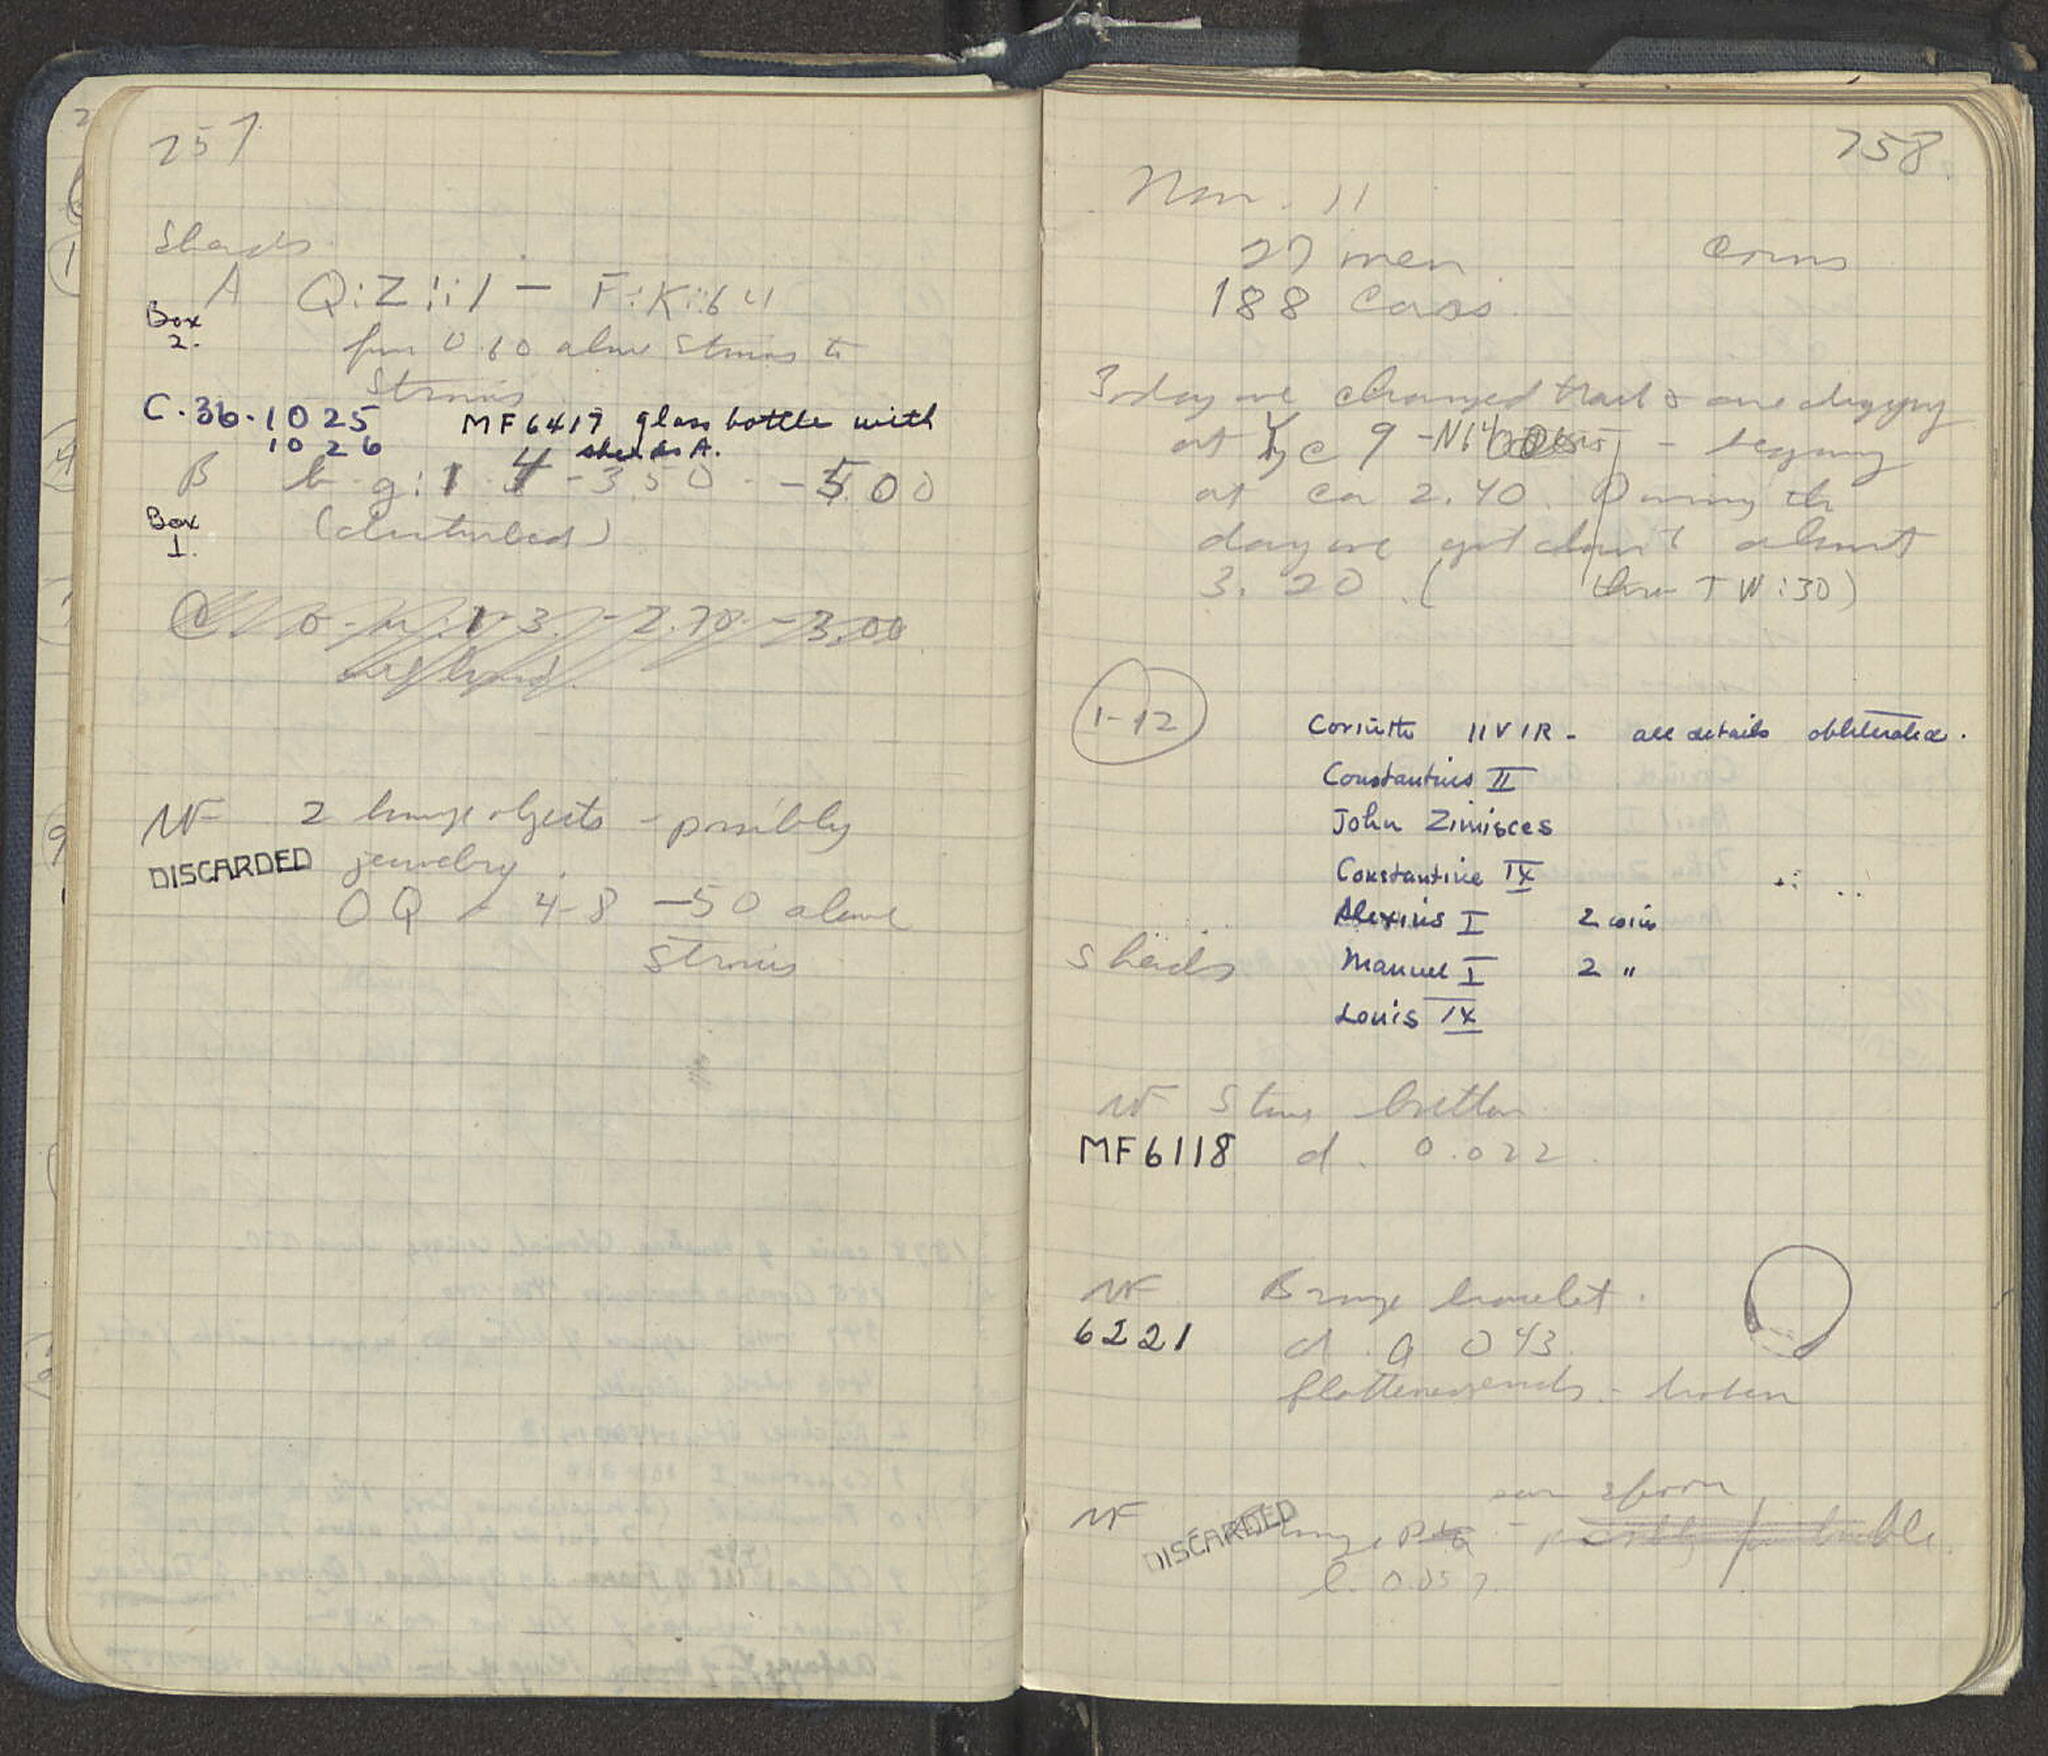 757
Sherds
A Q:Z:i:1 — F:K:64
Box 2.
from 0.60 above Stereo to
Stereo
C-36-1025 MF6417 glass bottle with
1026 sherds A.
B b-g:1-4 -3.50 - -5.00
Box 1.
(disturbed)
C 1-3. -2.70 - -3.00
MF 2 bronze objects - possibly
DISCARDED jewelry.
OQ - 4-8 -50 above
Stereo
758
Nov. 11
27 men Coins
188 cars.
Today we changed that & are digging
at 9 - begining
at ca 2.40. During the
day we got down to about
3.20 (TW:30)
1-12
Corinth IIVIR - all details obliterated.
Constantius II
John Zimisces
Constantine IX
Alexius I 2 coins
Sherds Manuel I 2 "
Louis IX
MF Stone button
MF6118 d. 0.022.
MF Bronze bracelet.
6221 d. 0.043.
flattened ends - broken
ear spoon
MF DISCARDED - possibly for buckle.
l. 0.057.